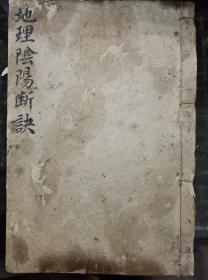 地理陰陽断訣